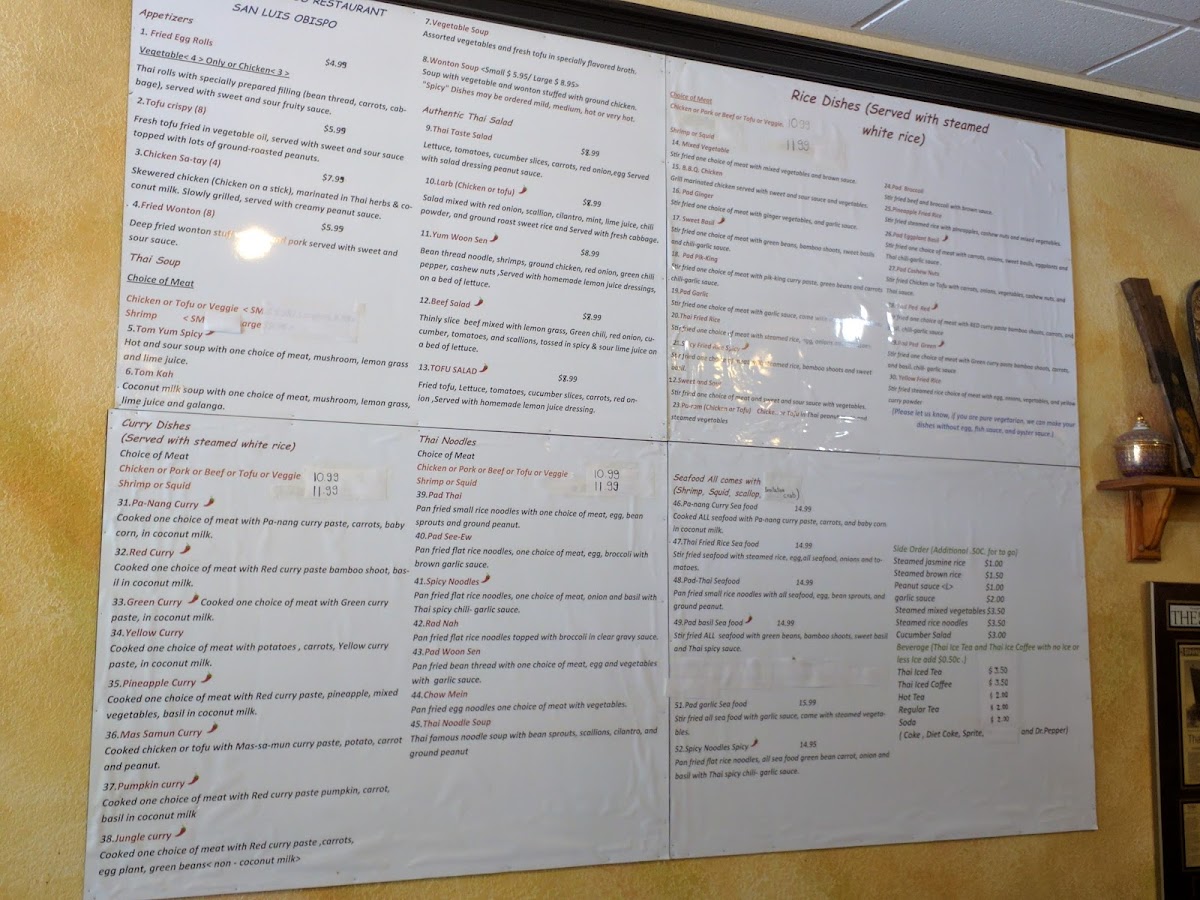 RESTAURANT
SAN LUIS OBISPO
Appetizers
1. Fried Egg Rolls
$4.99
Vegetable< 4 > Only or Chicken< 3 >
Thai rolls with specially prepared filling (bean thread, carrots, cab-
bage), served with sweet and sour fruity sauce.
2.Tofu crispy (8)
$5.99
Fresh tofu fried in vegetable oil, served with sweet and sour sauce
topped with lots of ground-roasted peanuts.
3.Chicken Sa-tay (4)
$7.99
Skewered chicken (Chicken on a stick), marinated in Thai herbs & co-
conut milk. Slowly grilled, served with creamy peanut sauce.
4.Fried Wonton (8)
$5.99
Deep fried wonton pork served with sweet and
sour sauce.
Thai Soup
Choice of Meat
Chicken or Tofu or Veggie < SM
Shrimp < SM arge
5.Tom Yum Spicy
Hot and sour soup with one choice of meat, mushroom, lemon grass
and lime juice.
6.Tom Kah
Coconut milk soup with one choice of meat, mushroom, lemon grass,
lime juice and galanga.
7.Vegetable Soup
Assorted vegetables and fresh tofu in specially flavored broth.
8.Wonton Soup <Small $ 5.95/ Large $ 8.95>
Soup with vegetable and wonton stuffed with ground chicken.
"Spicy" Dishes may be ordered mild, medium, hot or very hot.
Authentic Thai Salad
9.Thai Taste Salad
$8.99
Lettuce, tomatoes, cucumber slices, carrots, red onion,egg Served
with salad dressing peanut sauce.
10.Larb (Chicken or tofu)
$8.99
Salad mixed with red onion, scallion, cilantro, mint, lime juice, chili
powder, and ground roast sweet rice and Served with fresh cabbage.
11.Yum Woon Sen
$8.99
Bean thread noodle, shrimps, ground chicken, red onion, green chili
pepper, cashew nuts ,Served with homemade lemon juice dressings,
on a bed of lettuce.
12.Beef Salad
$8.99
Thinly slice beef mixed with lemon grass, Green chili, red onion, cu-
cumber, tomatoes, and scallions, tossed in spicy & sour lime juice on
a bed of lettuce.
13.TOFU SALAD
$8.99
Fried tofu, Lettuce, tomatoes, cucumber slices, carrots, red on-
ion ,Served with homemade lemon juice dressing.
Rice Dishes (Served with steamed
white rice)
Choice of Meat
Chicken or Pork or Beef or Tofu or Veggie. 10.99
Shrimp or Squid 11.99
14. Mixed Vegetable
Stir fried one choice of meat with mixed vegetables and brown sauce.
15. B.B.Q. Chicken
Grill marinated chicken served with sweet and sour sauce and vegetables.
16. Pad Ginger
Stir fried one choice of meat with ginger vegetables, and garlic sauce.
17. Sweet Basil
Stir fried one choice of meat with green beans, bamboo shoots, sweet basil
and chili-garlic sauce.
18. Pad Pik-King
Stir fried one choice of meat with pik-king curry paste, green beans and carrots
chili-garlic sauce.
19.Pad Garlic
Stir fried one choice of meat with garlic sauce, came with
20.Thai Fried Rice
Stir fried one choice of meat with steamed rice, egg, onions
21.Spicy Fried Rice Spicy
Stir fried one choice of meat steamed rice, bamboo shoots and sweet
basil.
12.Sweet and Sour
Stir fried one choice of meat sweet and sour sauce with vegetables.
23.Pa-ram (Chicken or Tofu) Chicken or Tofu in Thai peanut and
steamed vegetables
24.Pad Broccoli
Stir fried beef and broccoli with brown sauce.
25.Pineapple Fried Rice
Stir fried steamed rice with pineapples, cashew nuts and mixed vegetables.
26.Pad Eggplant Basil
Stir fried one choice of meat with carrots, onions, sweet basils, eggplants and
Thai chili-garlic sauce.
27.Pad Cashew Nuts
Stir fried Chicken or Tofu with carrots, onions, vegetables, cashew nuts, and
Thai sauce.
Pad Red
fried one choice of meat with RED curry paste bamboo shoots, carrots, and
chili-garlic sauce
Pad Green
Stir fried one choice of meat with Green curry paste bamboo shoots, carrots,
and basil, chili- garlic sauce
30. Yellow Fried Rice
Stir fried steamed rice choice of meat with egg, onions, vegetables, and yellow
curry powder
(Please let us know, if you are pure vegetarian, we can make your
dishes without egg, fish sauce, and oyster sauce.)
Curry Dishes
(Served with steamed white rice)
Choice of Meat
Chicken or Pork or Beef or Tofu or Veggie 10.99
Shrimp or Squid 11.99
31.Pa-Nang Curry
Cooked one choice of meat with Pa-nang curry paste, carrots, baby
corn, in coconut milk.
32.Red Curry
Cooked one choice of meat with Red curry paste bamboo shoot, bas-
il in coconut milk.
33.Green Curry Cooked one choice of meat with Green curry
paste, in coconut milk.
34.Yellow Curry
Cooked one choice of meat with potatoes , carrots, Yellow curry
paste, in coconut milk.
35.Pineapple Curry
Cooked one choice of meat with Red curry paste, pineapple, mixed
vegetables, basil in coconut milk.
36.Mas Samun Curry
Cooked chicken or tofu with Mas-sa-mun curry paste, potato, carrot
and peanut.
37.Pumpkin curry
Cooked one choice of meat with Red curry paste pumpkin, carrot,
basil in coconut milk
38.Jungle curry
Cooked one choice of meat with Red curry paste ,carrots,
egg plant, green beans< non - coconut milk>
Thai Noodles
Choice of Meat
Chicken or Pork or Beef or Tofu or Veggie 10.99
Shrimp or Squid 11.99
39.Pad Thai
Pan fried small rice noodles with one choice of meat, egg, bean
sprouts and ground peanut.
40.Pad See-Ew
Pan fried flat rice noodles, one choice of meat, egg, broccoli with
brown garlic sauce.
41.Spicy Noodles
Pan fried flat rice noodles, one choice of meat, onion and basil with
Thai spicy chili- garlic sauce.
42.Rad Nah
Pan fried flat rice noodles topped with broccoli in clear gravy sauce.
43.Pad Woon Sen
Pan fried bean thread with one choice of meat, egg and vegetables
with garlic sauce.
44.Chow Mein
Pan fried egg noodles one choice of meat with vegetables.
45.Thai Noodle Soup
Thai famous noodle soup with bean sprouts, scallions, cilantro, and
ground peanut
Seafood All comes with
(Shrimp, Squid, scallop, Imitation crab)
46.Pa-nang Curry Sea food 14.99
Cooked ALL seafood with Pa-nang curry paste, carrots, and baby corn
in coconut milk.
47.Thai Fried Rice Sea food 14.99
Stir fried seafood with steamed rice, egg,all seafood, onions and to-
matoes.
48.Pad-Thai Seafood 14.99
Pan fried small rice noodles with all seafood, egg, bean sprouts, and
ground peanut.
49.Pad basil Sea food 14.99
Stir fried ALL seafood with green beans, bamboo shoots, sweet basil
and Thai spicy sauce.
51.Pad garlic Sea food 15.99
Stir fried all sea food with garlic sauce, came with steamed vegeta-
bles.
52.Spicy Noodles Spicy 14.95
Pan fried flat rice noodles, all sea food green bean carrot, onion and
basil with Thai spicy chili- garlic sauce.
Side Order (Additional .50C. for to go)
Steamed jasmine rice $1.00
Steamed brown rice $1.50
Peanut sauce <L> $1.00
garlic sauce $2.00
Steamed mixed vegetables $3.50
Steamed rice noodles $3.50
Cucumber Salad $3.00
Beverage (Thai Ice Tea and Thai Ice Coffee with no ice or
less ice add $0.50c.)
Thai Iced Tea $ 3.50
Thai Iced Coffee $ 3.50
Hot Tea
Regular Tea
Soda
( Coke , Diet Coke, Sprite, and Dr.Pepper)
THES